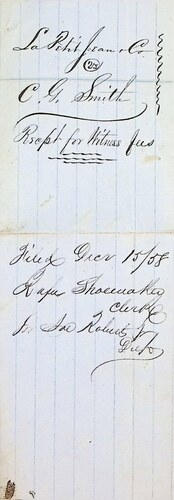 La Petit Jean & Co.
22
C. G. Smith
Recpt for Witness fees
Filed Decr 15/58
Rafe Shoemaker
Clerk
Joe Roberts
Dep